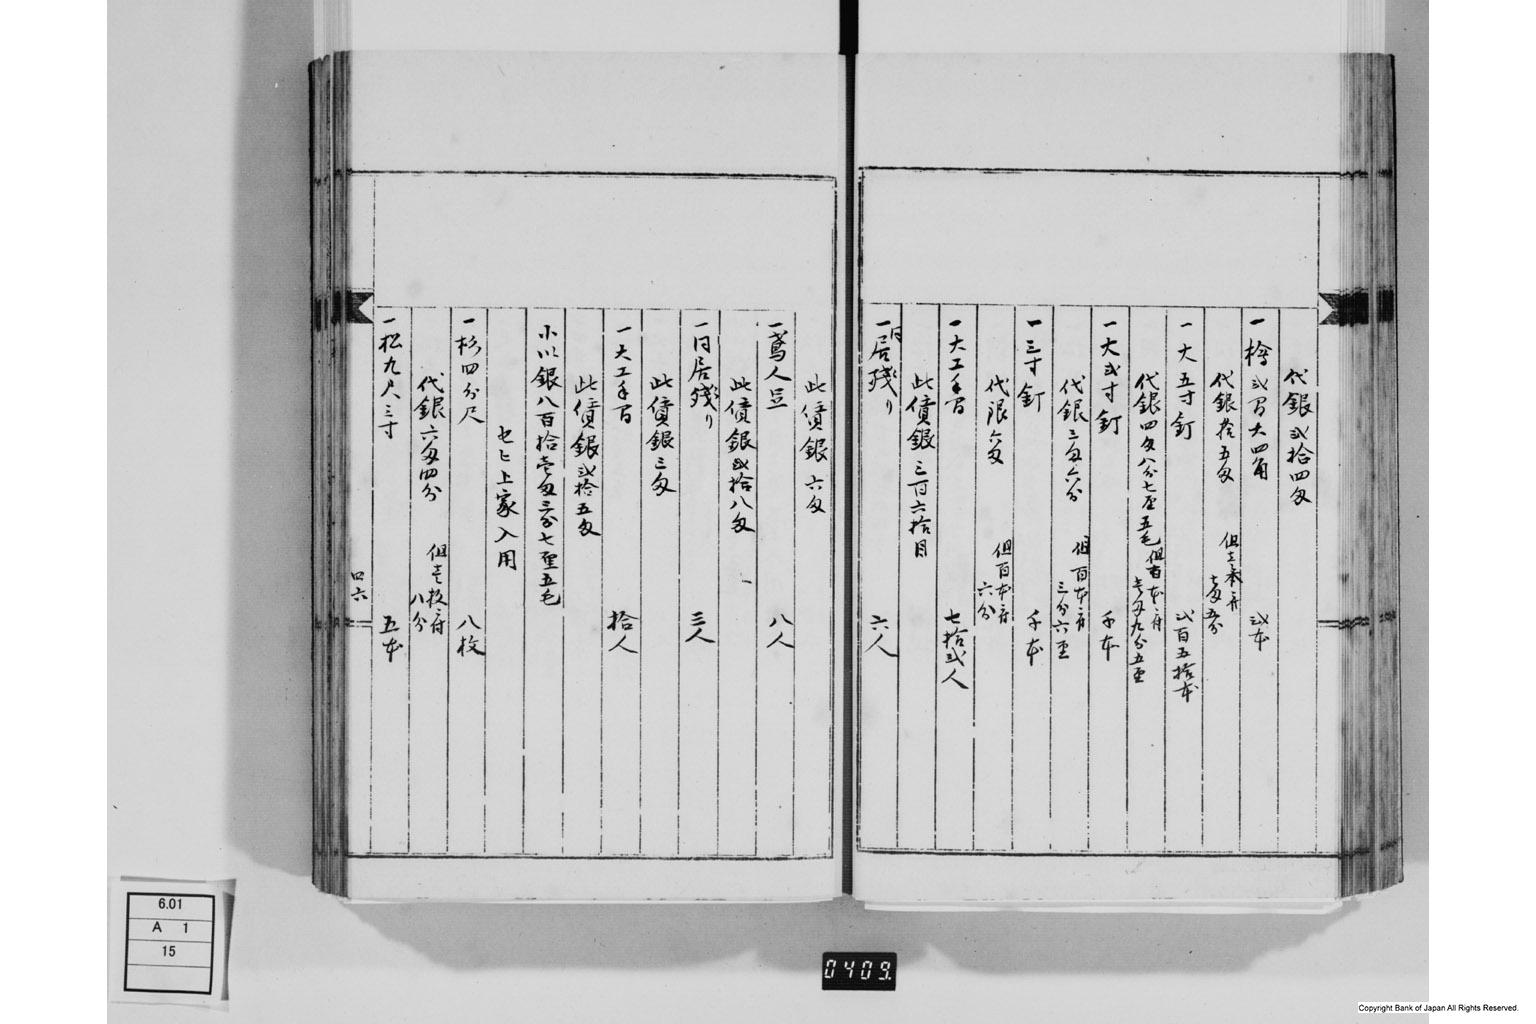 代銀弐拾四匁
一檜弐間大四角　弐本
代銀拾五匁　但壱本ニ付
七匁五分
一大五寸釘　弐百五拾本
代銀四匁八分七厘五毛　但百本ニ付
壱匁九分五厘
一大弐寸釘　千本
代銀三匁六分　但百本ニ付
三分六厘
一三寸釘　千本
代銀六匁　但百本ニ付
六分
一大工手間　七拾弐人
此賃銀三百六拾目
一同居残り　六人
此賃銀六匁
一鳶人足　八人
此賃銀弐拾八匁
一同居残り　三人
此賃銀三匁
一大工手間　拾人
此賃銀弐拾五匁
小以銀八百拾壱匁三分七厘五毛
上家入用
一杉四分尺　八枚
代銀六匁四分　但壱枚ニ付
八分
一松九尺三寸　五本
四六
6.01
A 1
15
0409.
Copyright Bank of Japan All Rights Reserved.